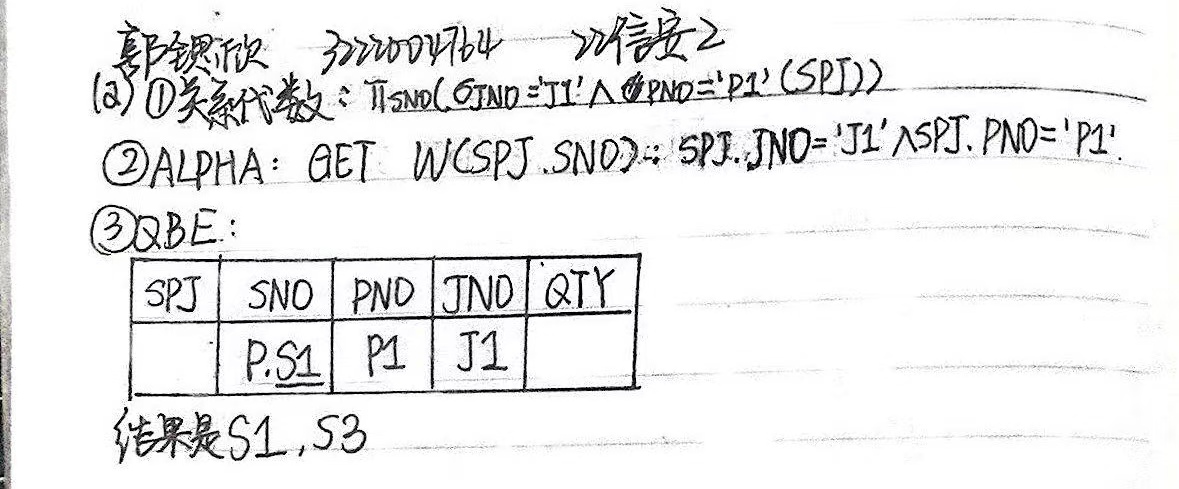 郭锶欣 3222004764 22信安2
(2) ①关系代数: πSNO(σJNO='J1'∧PNO='P1'(SPJ))
②ALPHA: GET W(SPJ.SNO): SPJ.JNO='J1'∧SPJ.PNO='P1'.
③QBE:
SPJ SNO PNO JNO QTY
P.S1 P1 J1
结果是S1,S3